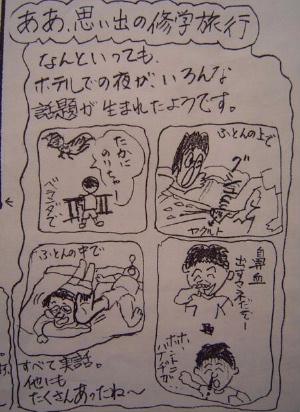 ああ、思い出の修学旅行
なんといっても、
ホテルでの夜が、いろんな
話題が生まれたようです。
たかに
のりちゅー
ベランダで
ふとんの上で
グ
ヤクルト
ふとんの中で
鼻血
出すマネだぞー
ホホー
すべて実話。
他にも
たくさんあったね〜